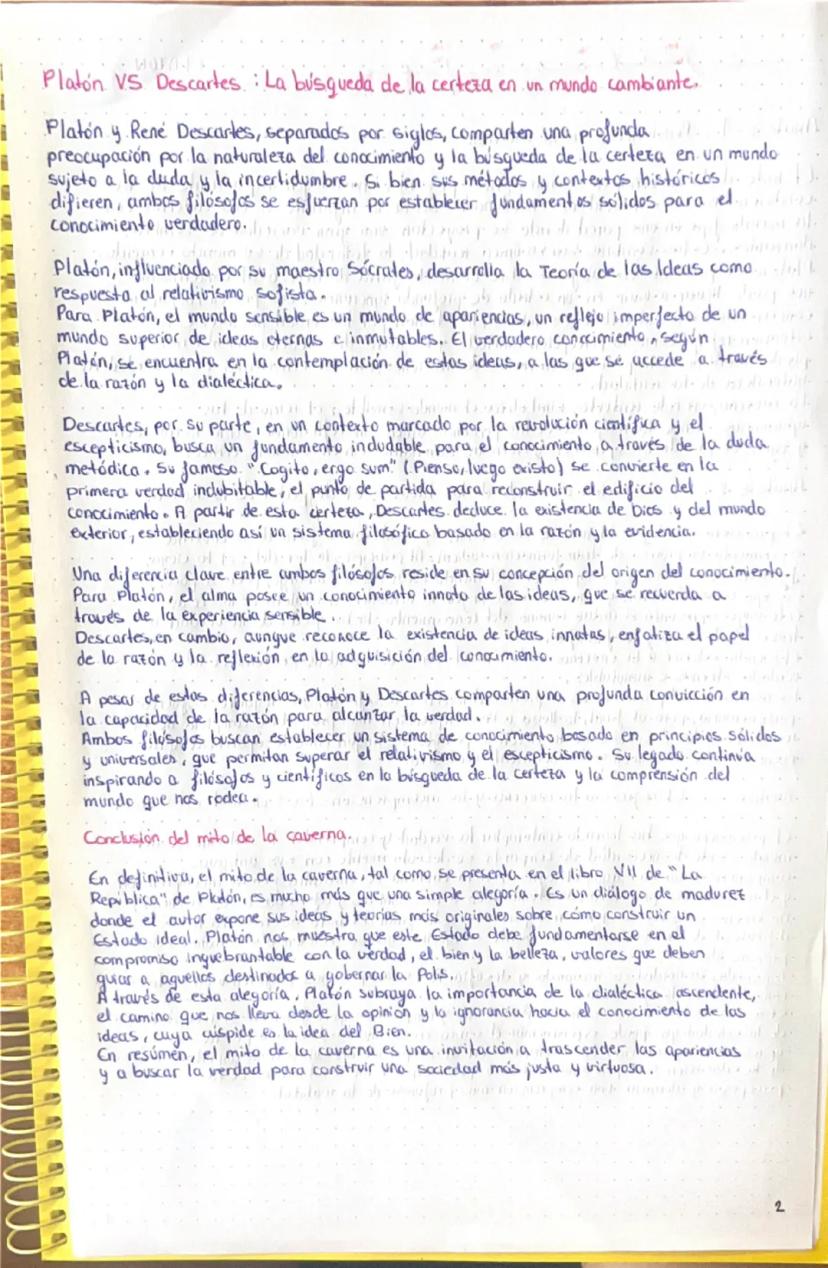 Platón VS Descartes : La búsqueda de la certeza en un mundo cambiante.
Platón y René Descartes, separados por siglos, comparten una profunda
preocupación por la naturaleza del conocimiento y la búsqueda de la certeza en un mundo
sujeto a la duda y la incertidumbre. Si bien sus métodos y contextos históricos
difieren, ambos filósofos se esfuerzan por establecer fundamentos sólidos para el
conocimiento verdadero.
Platón, influenciado por su maestro Sócrates, desarrolla la Teoría de las Ideas como
respuesta al relativismo sofista.
Para Platón, el mundo sensible es un mundo de apariencias, un reflejo imperfecto de un
mundo superior de ideas eternas e inmutables. El verdadero conocimiento, según
Platón, se encuentra en la contemplación de estas ideas, a las que se accede a través
de la razón y la dialéctica.
Descartes, por su parte, en un contexto marcado por la revolución científica y el
escepticismo, busca un fundamento indudable para el conocimiento a través de la duda
metódica. Su famoso "Cogito, ergo sum" (Pienso, luego existo) se convierte en la
primera verdad indubitable, el punto de partida para reconstruir el edificio del
conocimiento. A partir de esta certeza, Descartes deduce la existencia de Dios y del mundo
exterior, estableciendo así un sistema filosófico basado en la razón y la evidencia.
Una diferencia clave entre ambos filósofos reside en su concepción del origen del conocimiento.
Para Platón, el alma posee un conocimiento innato de las ideas, que se recuerda a
través de la experiencia sensible.
Descartes, en cambio, aunque reconoce la existencia de ideas innatas, enfatiza el papel
de la razón y la reflexión en la adquisición del conocimiento.
A pesar de estas diferencias, Platón y Descartes comparten una profunda convicción en
la capacidad de la razón para alcanzar la verdad.
Ambos filósofos buscan establecer un sistema de conocimiento basado en principios sólidos
y universales, que permitan superar el relativismo y el escepticismo. Su legado continúa
inspirando a filósofos y científicos en la búsqueda de la certeza y la comprensión del
mundo que nos rodea.
Conclusión del mito de la caverna.
En definitiva, el mito de la caverna, tal como se presenta en el libro VII de "La
República" de Platón, es mucho más que una simple alegoría. Es un diálogo de madurez
donde el autor expone sus ideas y teorías más originales sobre cómo construir un
Estado ideal. Platón nos muestra que este Estado debe fundamentarse en al
compromiso inquebrantable con la verdad, el bien y la belleza, valores que deben
guiar a aquellos destinados a gobernar la Polis.
A través de esta alegoría, Platón subraya la importancia de la dialéctica ascendente,
el camino que nos lleva desde la opinión y la ignorancia hacia el conocimiento de las
ideas, cuya cúspide es la idea del Bien.
En resúmen, el mito de la caverna es una invitación a trascender las apariencias
y a buscar la verdad para construir una sociedad más justa y virtuosa.
2